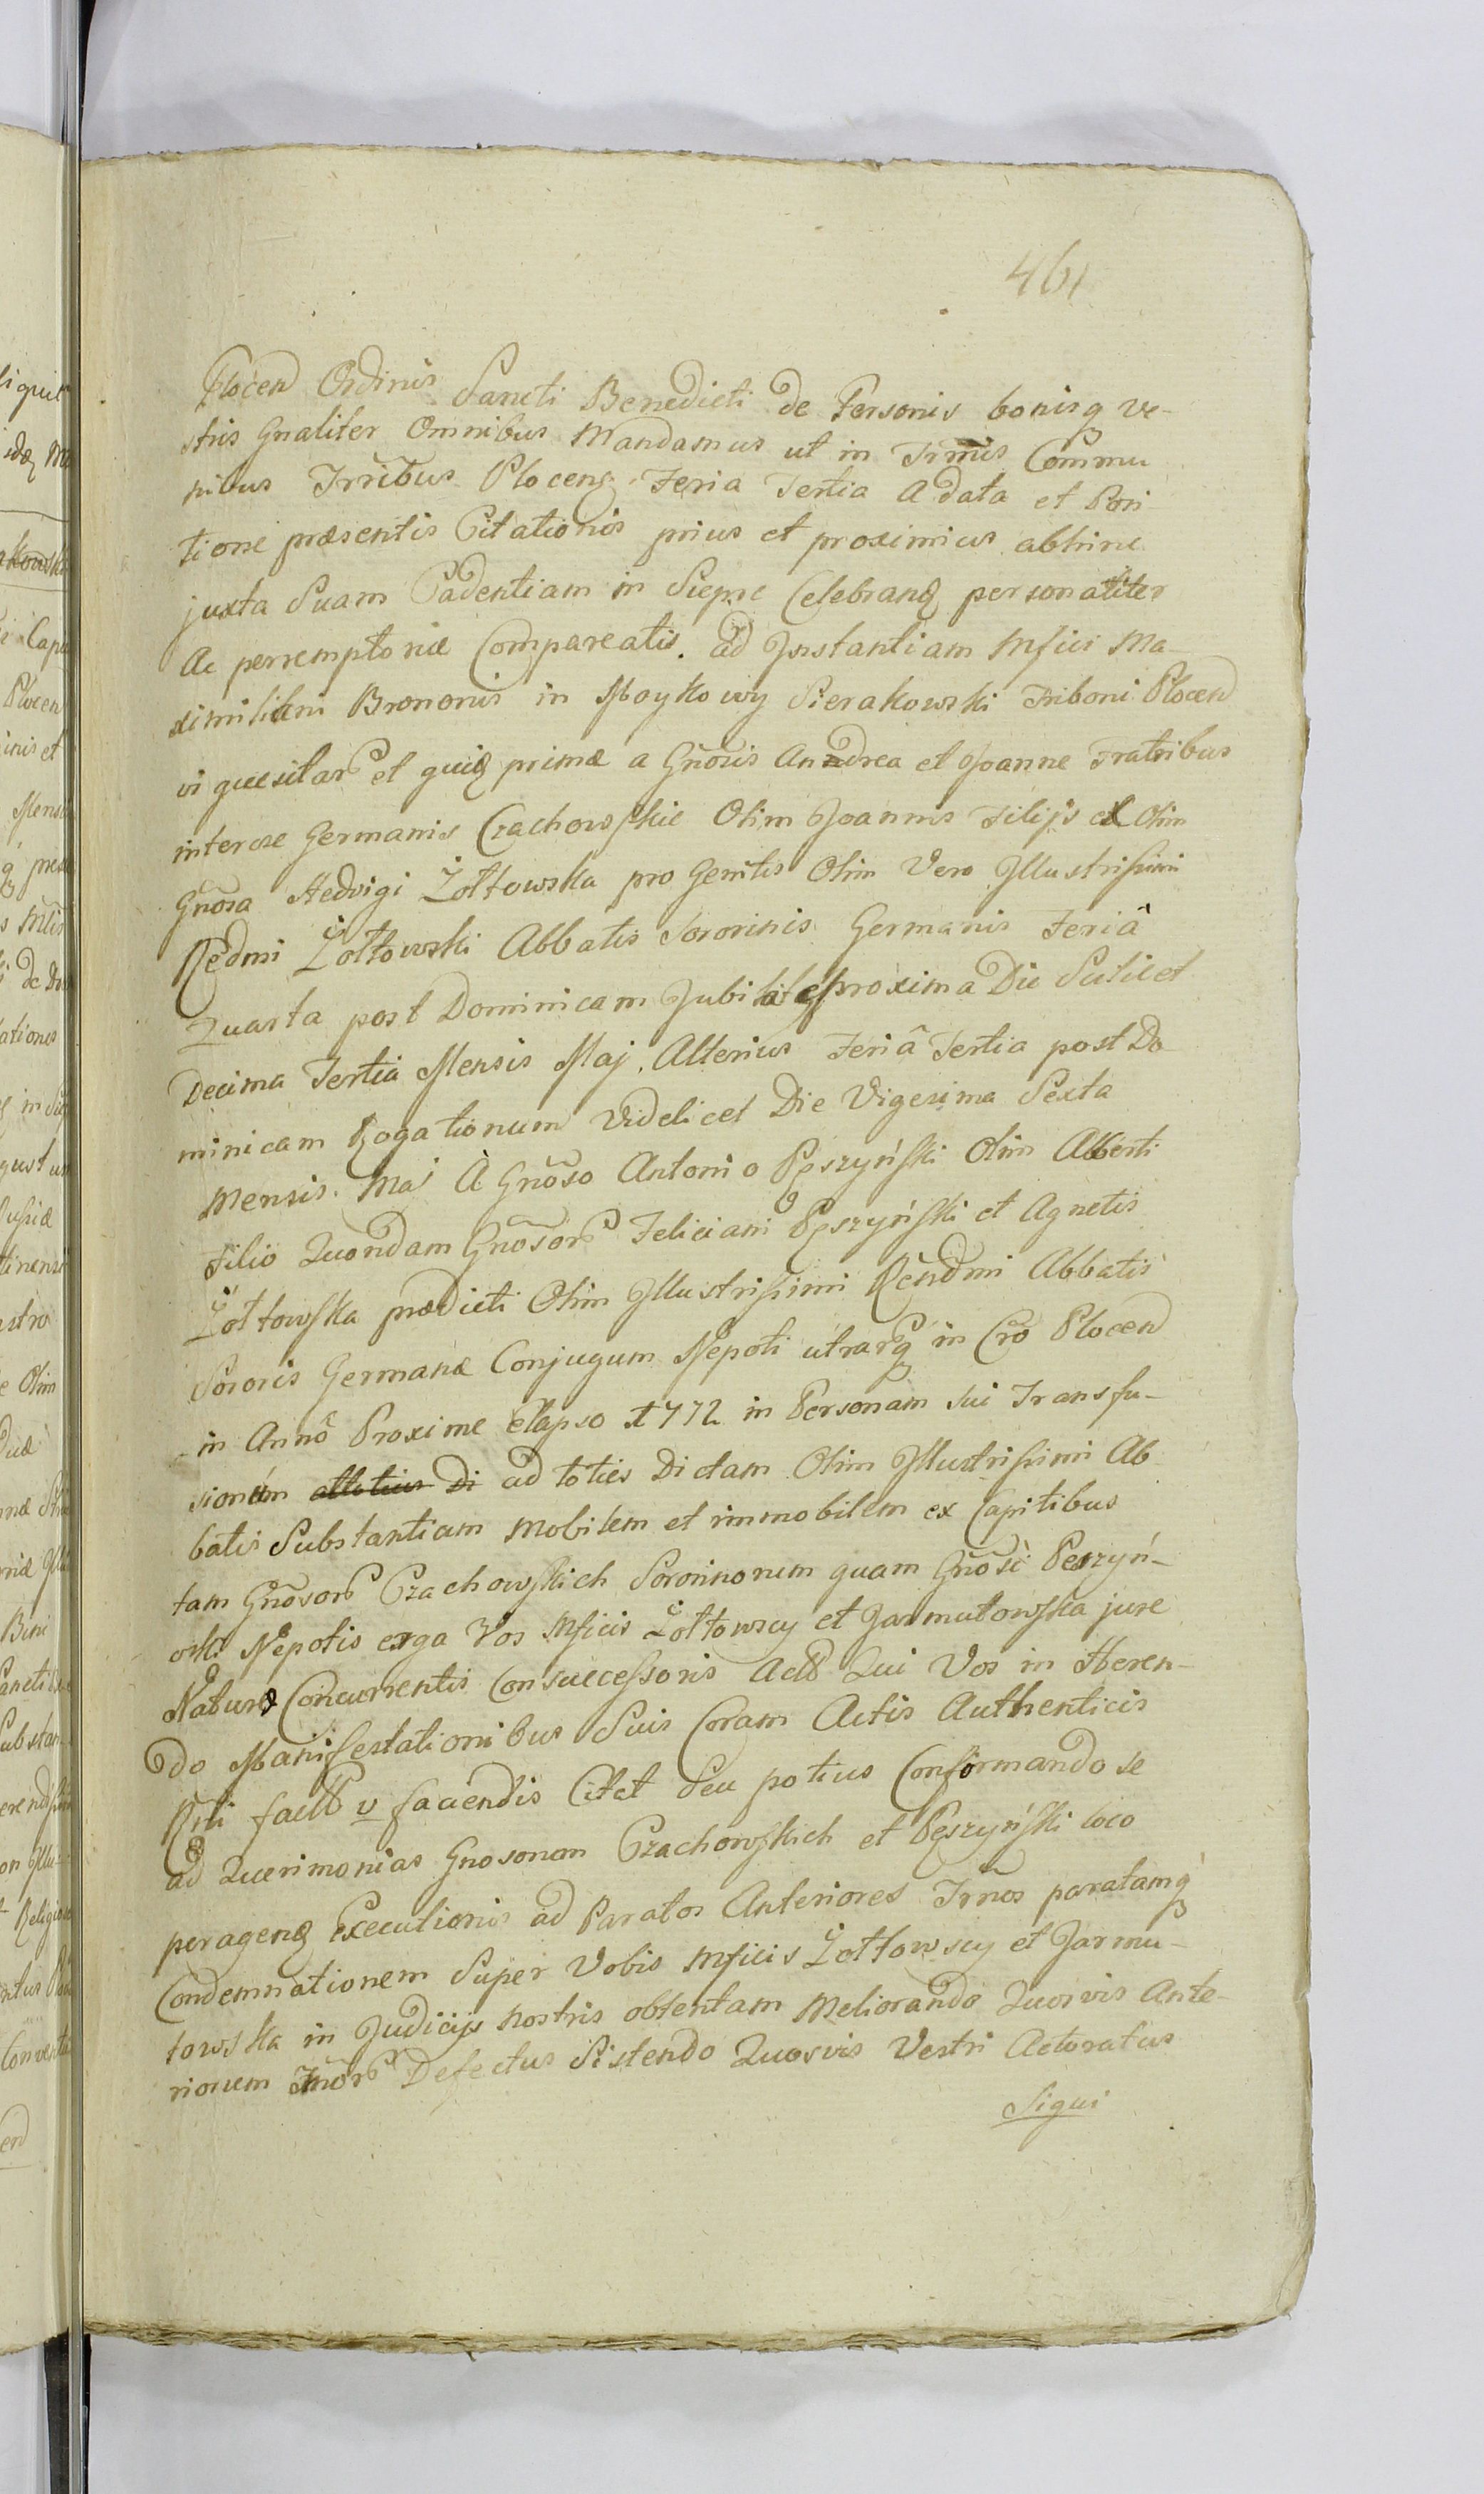 461
Plocen Ordinis Sancti Benedicti de Personis bonisq ve-
stris Gnaliter Omnibus Mandamus ut in Trmis Commu
nibus Trribus Plocens. Feria Tertia A data et Posi-
tione præsentis Citationis prius et proximius abhinc
juxta Suam Cadentiam in Siepre Celebrand personaliter
Ac perremptorie Compareatis. ad Instantiam Mfici Ma-
ximiliani Brononis in Moykowy Sierakowski Triboni Plocen
vi quæsitar et quid primæ a Gnosis Andrea et Joanne Fratribus
interse Germanis Czachowskie Olim Joannis Filijs et Olim
Gnosa Hedvigi Żołtowska pro Genitis Olim Vero Jllustrissimi
Redmi Żołtowski Abbatis Sororinis Germanis Feriâ
Quarta post Dominicam Jubilate proxima Die Scilicet
Decima Tertia Mensis Maj. Alterius Feriâ Tertia post Do
minicam Rogationum Videlicet Die Vigesima Sexta
Mensis. Maj À Gnoso Antonio Pęszyński Olim Alberti
Filio Quondam Gnosor Feliciani Pęszyński et Agnetis
Żołtowska prædicti Olim Jllustrissimi Rendmi Abbatis
Sororis Germanæ Conjugum Nepoti utrarq in Cro Plocen
in Annô Proxime elapso 1772 in Personam sui Transfu-
sionem ad toties Dictam Olim Jllustrissimi Ab
batis Substantiam Mobilem et immobilem ex Capitibus
tam Gnosor Czachowskich Sororinorum quam Gnosi Peszyń-
ski Nepotis erga Vos Mficis Żołtowscy et Jarmutowska jure
Naturæ Concurrentis Consuccessoris Act Qui Vos in Heren-
do Manifestationibus Suis Coram Actis Authenticis
Riti fact v faciendis Citat Seu potius Conformando se
ad Querimonias Gnosorum Czachowskich et Pęszyński loco
peragend Executionis ad Paratos Anteriores Trnos paratamq
Condemnationem Super Vobis Mficis Żołtowscy et Jarmu-
towska in Judicijs nostris obtentam Meliorando Quovis Ante-
riorum Trnor Defectus Sistendo Quosvis Vestri Actoratus
Siqui